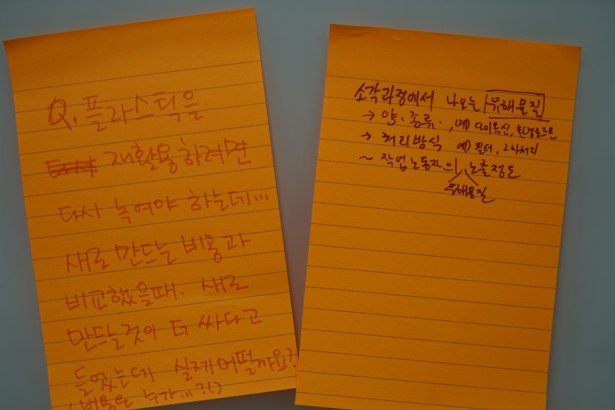 Q. 플라스틱을
재활용하려면
다시 녹여야 하는데...
새로 만드는 비용과
비교했을때. 새로
만드는것이 더 싸다고
들었는데 실제 어떨까요?
(비용은 누가...?!)
소각과정에서 나오는 유해물질
→ 양·종류·, 예) 다이옥신, 환경호르몬
→ 처리방식 예) 필터, 2차처리
~ 작업 노동자의 노출정도
유해물질